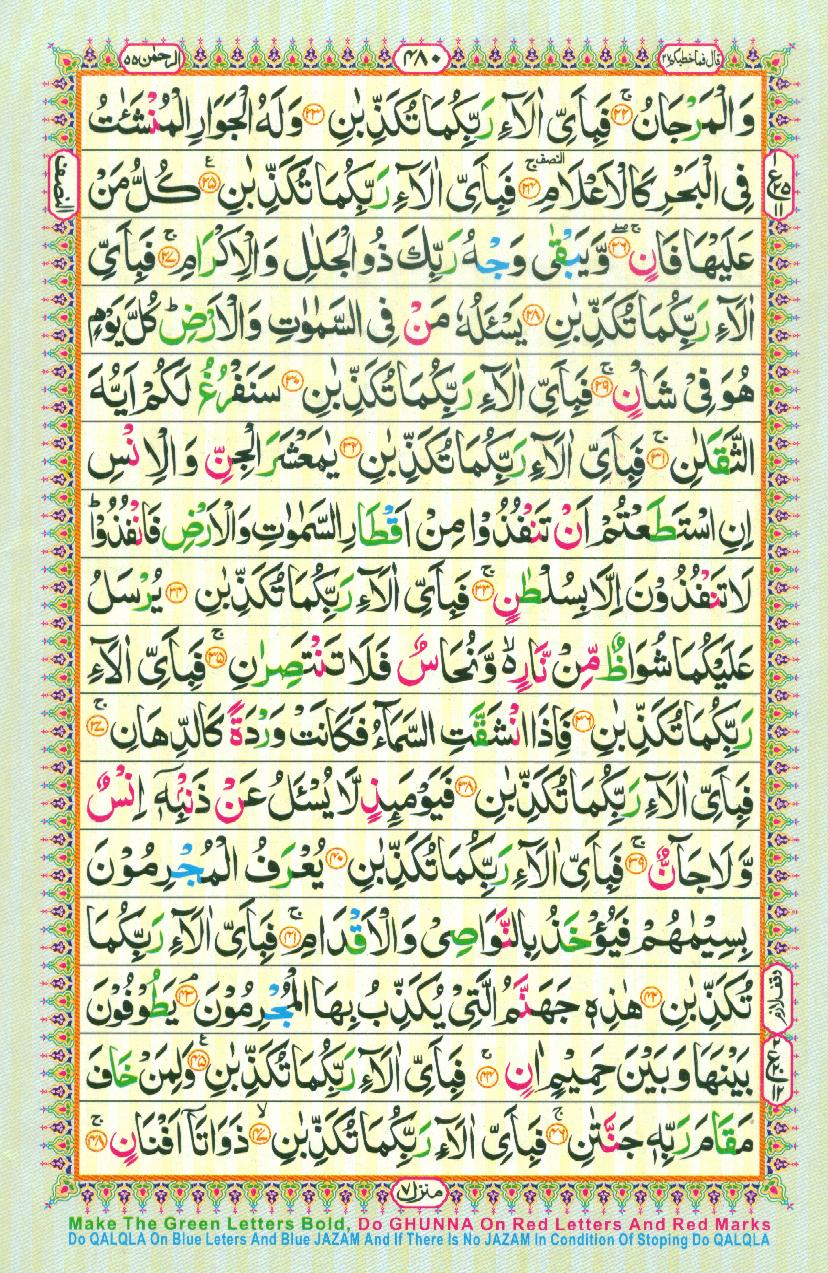 قال فماخطبکم ٢٧
٤٨٠
الرحمٰن ٥٥
وَالْمَرْجَانُ ۚ ﴿٢٢﴾ فَبِاَىِّ اٰلَآءِ رَبِّكُمَا تُكَذِّبٰنِ ﴿٢٣﴾ وَلَهُ الْجَوَارِ الْمُنْشَئٰتُ
فِى الْبَحْرِ كَالْاَعْلَامِ ۚ ﴿٢٤﴾ النصف فَبِاَىِّ اٰلَآءِ رَبِّكُمَا تُكَذِّبٰنِ ﴿٢٥﴾ ع كُلُّ مَنْ
عَلَيْهَا فَانٍ ۚۖ ﴿٢٦﴾ وَّيَبْقٰى وَجْهُ رَبِّكَ ذُو الْجَلٰلِ وَالْاِكْرَامِ ۚ ﴿٢٧﴾ فَبِاَىِّ
اٰلَآءِ رَبِّكُمَا تُكَذِّبٰنِ ﴿٢٨﴾ يَسْئَلُهٗ مَنْ فِى السَّمٰوٰتِ وَالْاَرْضِ ؕ كُلَّ يَوْمٍ
هُوَ فِىْ شَاْنٍ ۚ ﴿٢٩﴾ فَبِاَىِّ اٰلَآءِ رَبِّكُمَا تُكَذِّبٰنِ ﴿٣٠﴾ سَنَفْرُغُ لَكُمْ اَيُّهَ
الثَّقَلٰنِ ۚ ﴿٣١﴾ فَبِاَىِّ اٰلَآءِ رَبِّكُمَا تُكَذِّبٰنِ ﴿٣٢﴾ يٰمَعْشَرَ الْجِنِّ وَالْاِنْسِ
اِنِ اسْتَطَعْتُمْ اَنْ تَنْفُذُوْا مِنْ اَقْطَارِ السَّمٰوٰتِ وَالْاَرْضِ فَانْفُذُوْا ؕ
لَا تَنْفُذُوْنَ اِلَّا بِسُلْطٰنٍ ۚ ﴿٣٣﴾ فَبِاَىِّ اٰلَآءِ رَبِّكُمَا تُكَذِّبٰنِ ﴿٣٤﴾ يُرْسَلُ
عَلَيْكُمَا شُوَاظٌ مِّنْ نَّارٍ ۙ وَّنُحَاسٌ فَلَا تَنْتَصِرٰنِ ۚ ﴿٣٥﴾ فَبِاَىِّ اٰلَآءِ
رَبِّكُمَا تُكَذِّبٰنِ ﴿٣٦﴾ فَاِذَا انْشَقَّتِ السَّمَآءُ فَكَانَتْ وَرْدَةً كَالدِّهَانِ ۚ ﴿٣٧﴾
فَبِاَىِّ اٰلَآءِ رَبِّكُمَا تُكَذِّبٰنِ ﴿٣٨﴾ فَيَوْمَئِذٍ لَّا يُسْئَلُ عَنْ ذَنْۢبِهٖۤ اِنْسٌ
وَّلَا جَآنٌّ ۚ ﴿٣٩﴾ فَبِاَىِّ اٰلَآءِ رَبِّكُمَا تُكَذِّبٰنِ ﴿٤٠﴾ يُعْرَفُ الْمُجْرِمُوْنَ
بِسِيْمٰهُمْ فَيُؤْخَذُ بِالنَّوَاصِىْ وَالْاَقْدَامِ ۚ ﴿٤١﴾ فَبِاَىِّ اٰلَآءِ رَبِّكُمَا
تُكَذِّبٰنِ ﴿٤٢﴾ هٰذِهٖ جَهَنَّمُ الَّتِىْ يُكَذِّبُ بِهَا الْمُجْرِمُوْنَ ۘ ﴿٤٣﴾ يَطُوْفُوْنَ
بَيْنَهَا وَبَيْنَ حَمِيْمٍ اٰنٍ ۚ ﴿٤٤﴾ فَبِاَىِّ اٰلَآءِ رَبِّكُمَا تُكَذِّبٰنِ ﴿٤٥﴾ ع وَلِمَنْ خَافَ
مَقَامَ رَبِّهٖ جَنَّتٰنِ ۚ ﴿٤٦﴾ فَبِاَىِّ اٰلَآءِ رَبِّكُمَا تُكَذِّبٰنِ ۙ ﴿٤٧﴾ ذَوَاتَاۤ اَفْنَانٍ ۚ ﴿٤٨﴾
النصف
منزل ٧
Make The Green Letters Bold, Do GHUNNA On Red Letters And Red Marks
Do QALQLA On Blue Leters And Blue JAZAM And If There Is No JAZAM In Condition Of Stoping Do QALQLA